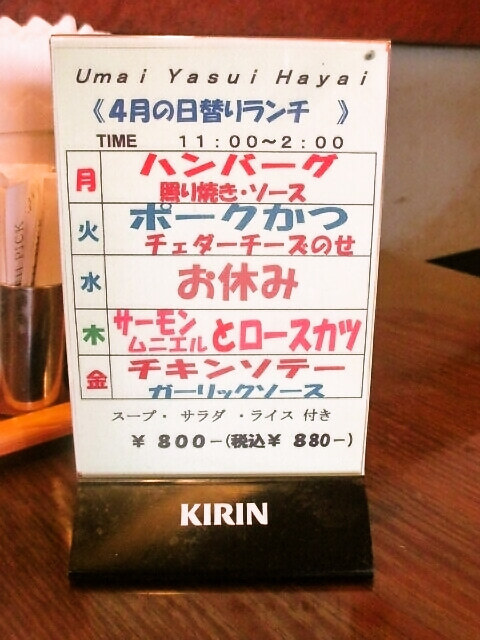 Umai Yasui Hayai
《4月の日替りランチ 》
TIME 11:00～2:00
月 ハンバーグ
照り焼き・ソース
火 ポークかつ
チェダーチーズのせ
水 お休み
木 サーモンムニエルとロースカツ
金 チキンソテー
ガーリックソース
スープ・ サラダ ・ライス 付き
￥ 800-(税込￥ 880-)
KIRIN